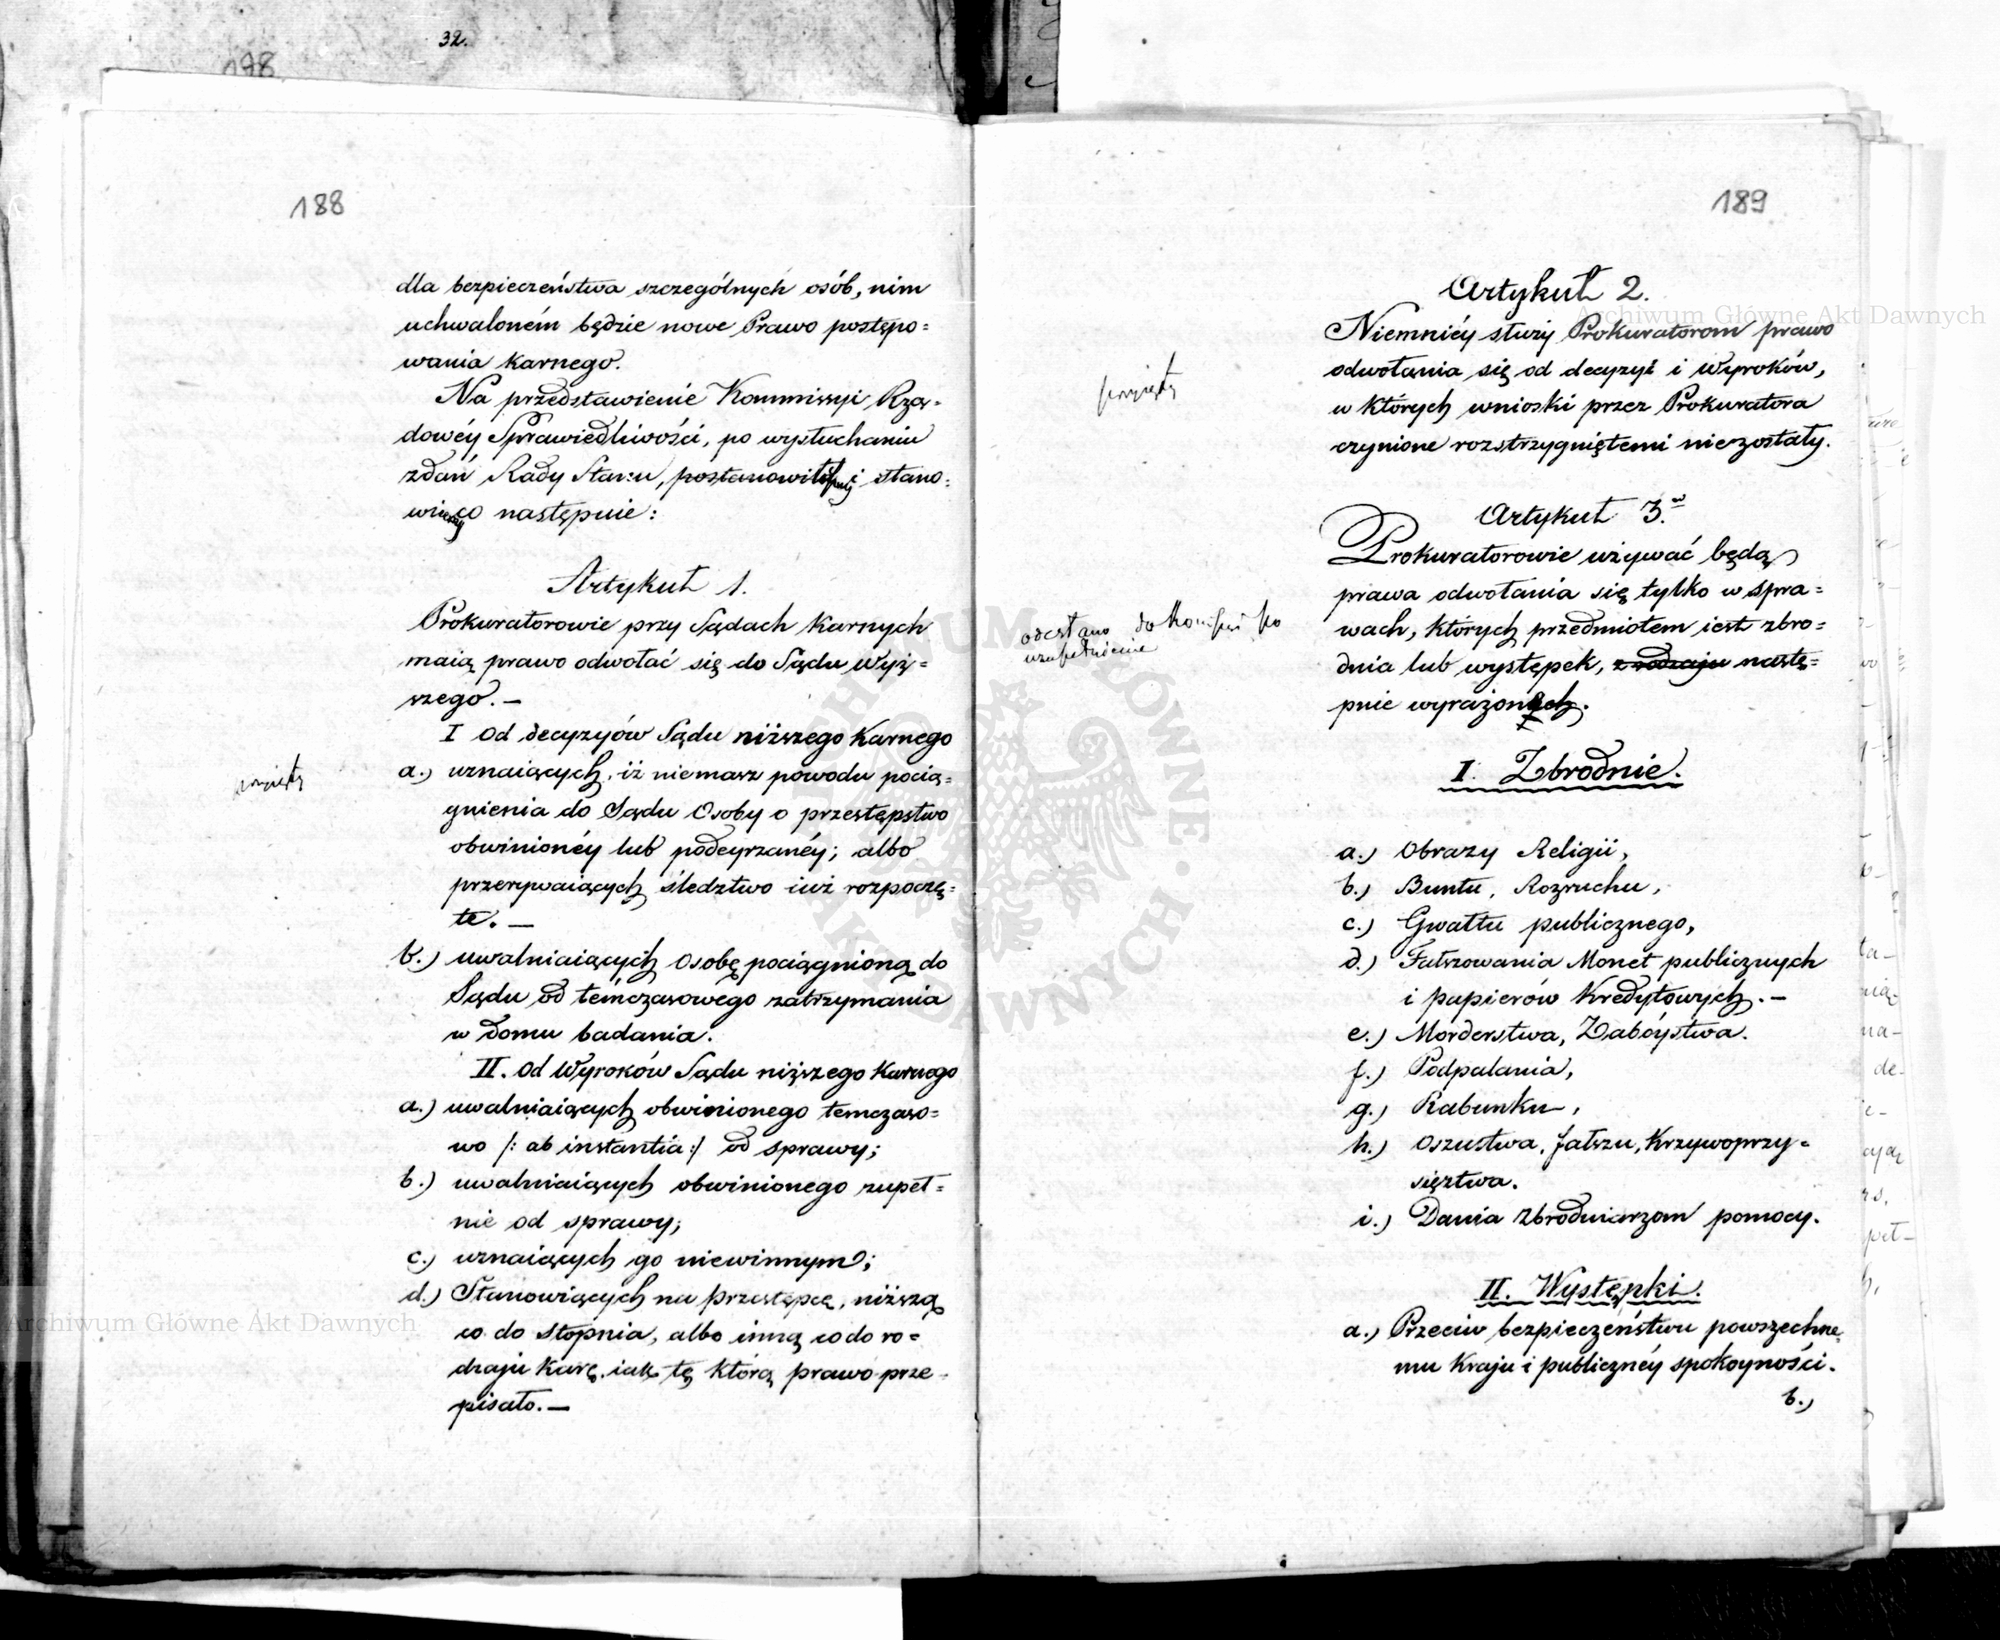 32.
198
188
dla bezpieczeństwa szczególnych osób, nim
uchwaloném będzie nowe Prawo postępo=
wania karnego.
Na przedstawienie Kommissyi Rzą=
dowéy Sprawiedliwości, po wysłuchaniu
zdań Rady Stanu, i stano=
następuie:
Artykuł 1.
Prokuratorowie przy Sądach Karnych
maią prawo odwołać się do Sądu wyż=
szego. —
I od decyzyów Sądu niższego Karnego
przyięty
a.) uznaiących, iż niemasz powodu pocią=
gnienia do Sądu Osoby o przestępstwo
obwinionéy lub podeyrzanéy; albo
przerywaiących śledztwo iuż rozpoczę=
te. —
b.) uwalniaiących osobę pociągnioną do
Sądu od témczasowego zatrzymania
w domu badania.
II. od Wyroków Sądu niższego Karnego
a.) uwalniaiących obwinionego temczaso=
wo /: ab instantia :/ od sprawy;
b.) uwalniaiących obwinionego zupeł=
nie od sprawy;
c.) uznaiących go niewinnym;
d.) Stanowiących na przestępcę, niższą
co do stopnia, albo inną co do ro=
dzaju karę, iak tę którą prawo prze=
pisało. —
189
Artykuł 2.
Niemniéy służy Prokuratorom prawo
odwołania się od decyzyi i wyroków,
przyięty
w których wnioski przez Prokuratora
czynione rozstrzygniętemi niezostały.
Artykuł 3.
Prokuratorowie używać będą
prawa odwołania się tylko w spra=
odesłano do Komissyi po
uzupełnienie
wach, których przedmiotem iest zbro=
dnia lub występek, z rodzaju nastę=
pnie
I. Zbrodnie.
a.) Obrazy Religii,
b.) Buntu, Rozruchu,
c.) Gwałtu publicznego,
d.) Fałszowania Monet publicznych
i papierów Kredytowych. —
e.) Morderstwa, Zabóystwa.
f.) Podpalania,
g.) Rabunku,
h.) Oszustwa, fałszu, Krzywoprzy=
sięztwa.
i.) Dania Zbrodniarzom pomocy.
II. Występki.
a.) Przeciw bezpieczeństwu powszechne=
mu Kraju i publicznéy spokoyności.
b.)
Archiwum Główne Akt Dawnych
Archiwum Główne Akt Dawnych
ARCHIWUM GŁÓWNE AKT DAWNYCH